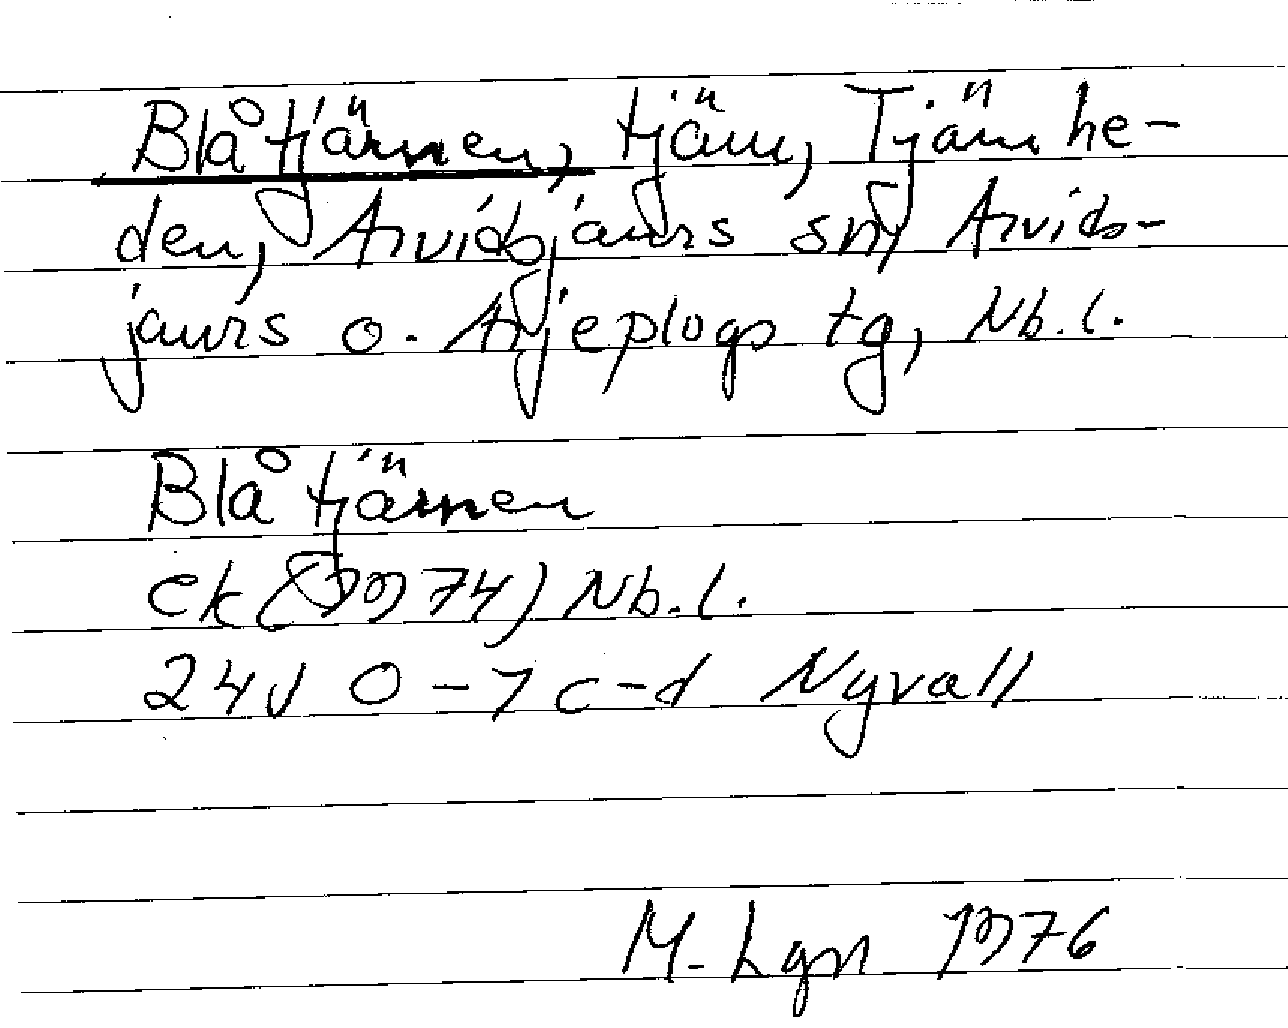 Blåtjärnen, tjärn, Tjärnhe-
den, Arvidsjaurs sn, Arvids-
jaurs o. Arjeplogs tg, Nb.l.
Blåtjärnen
ek (1974) Nb.l.
24J 0-7 c-d Nyvall
M. Lgn 1976